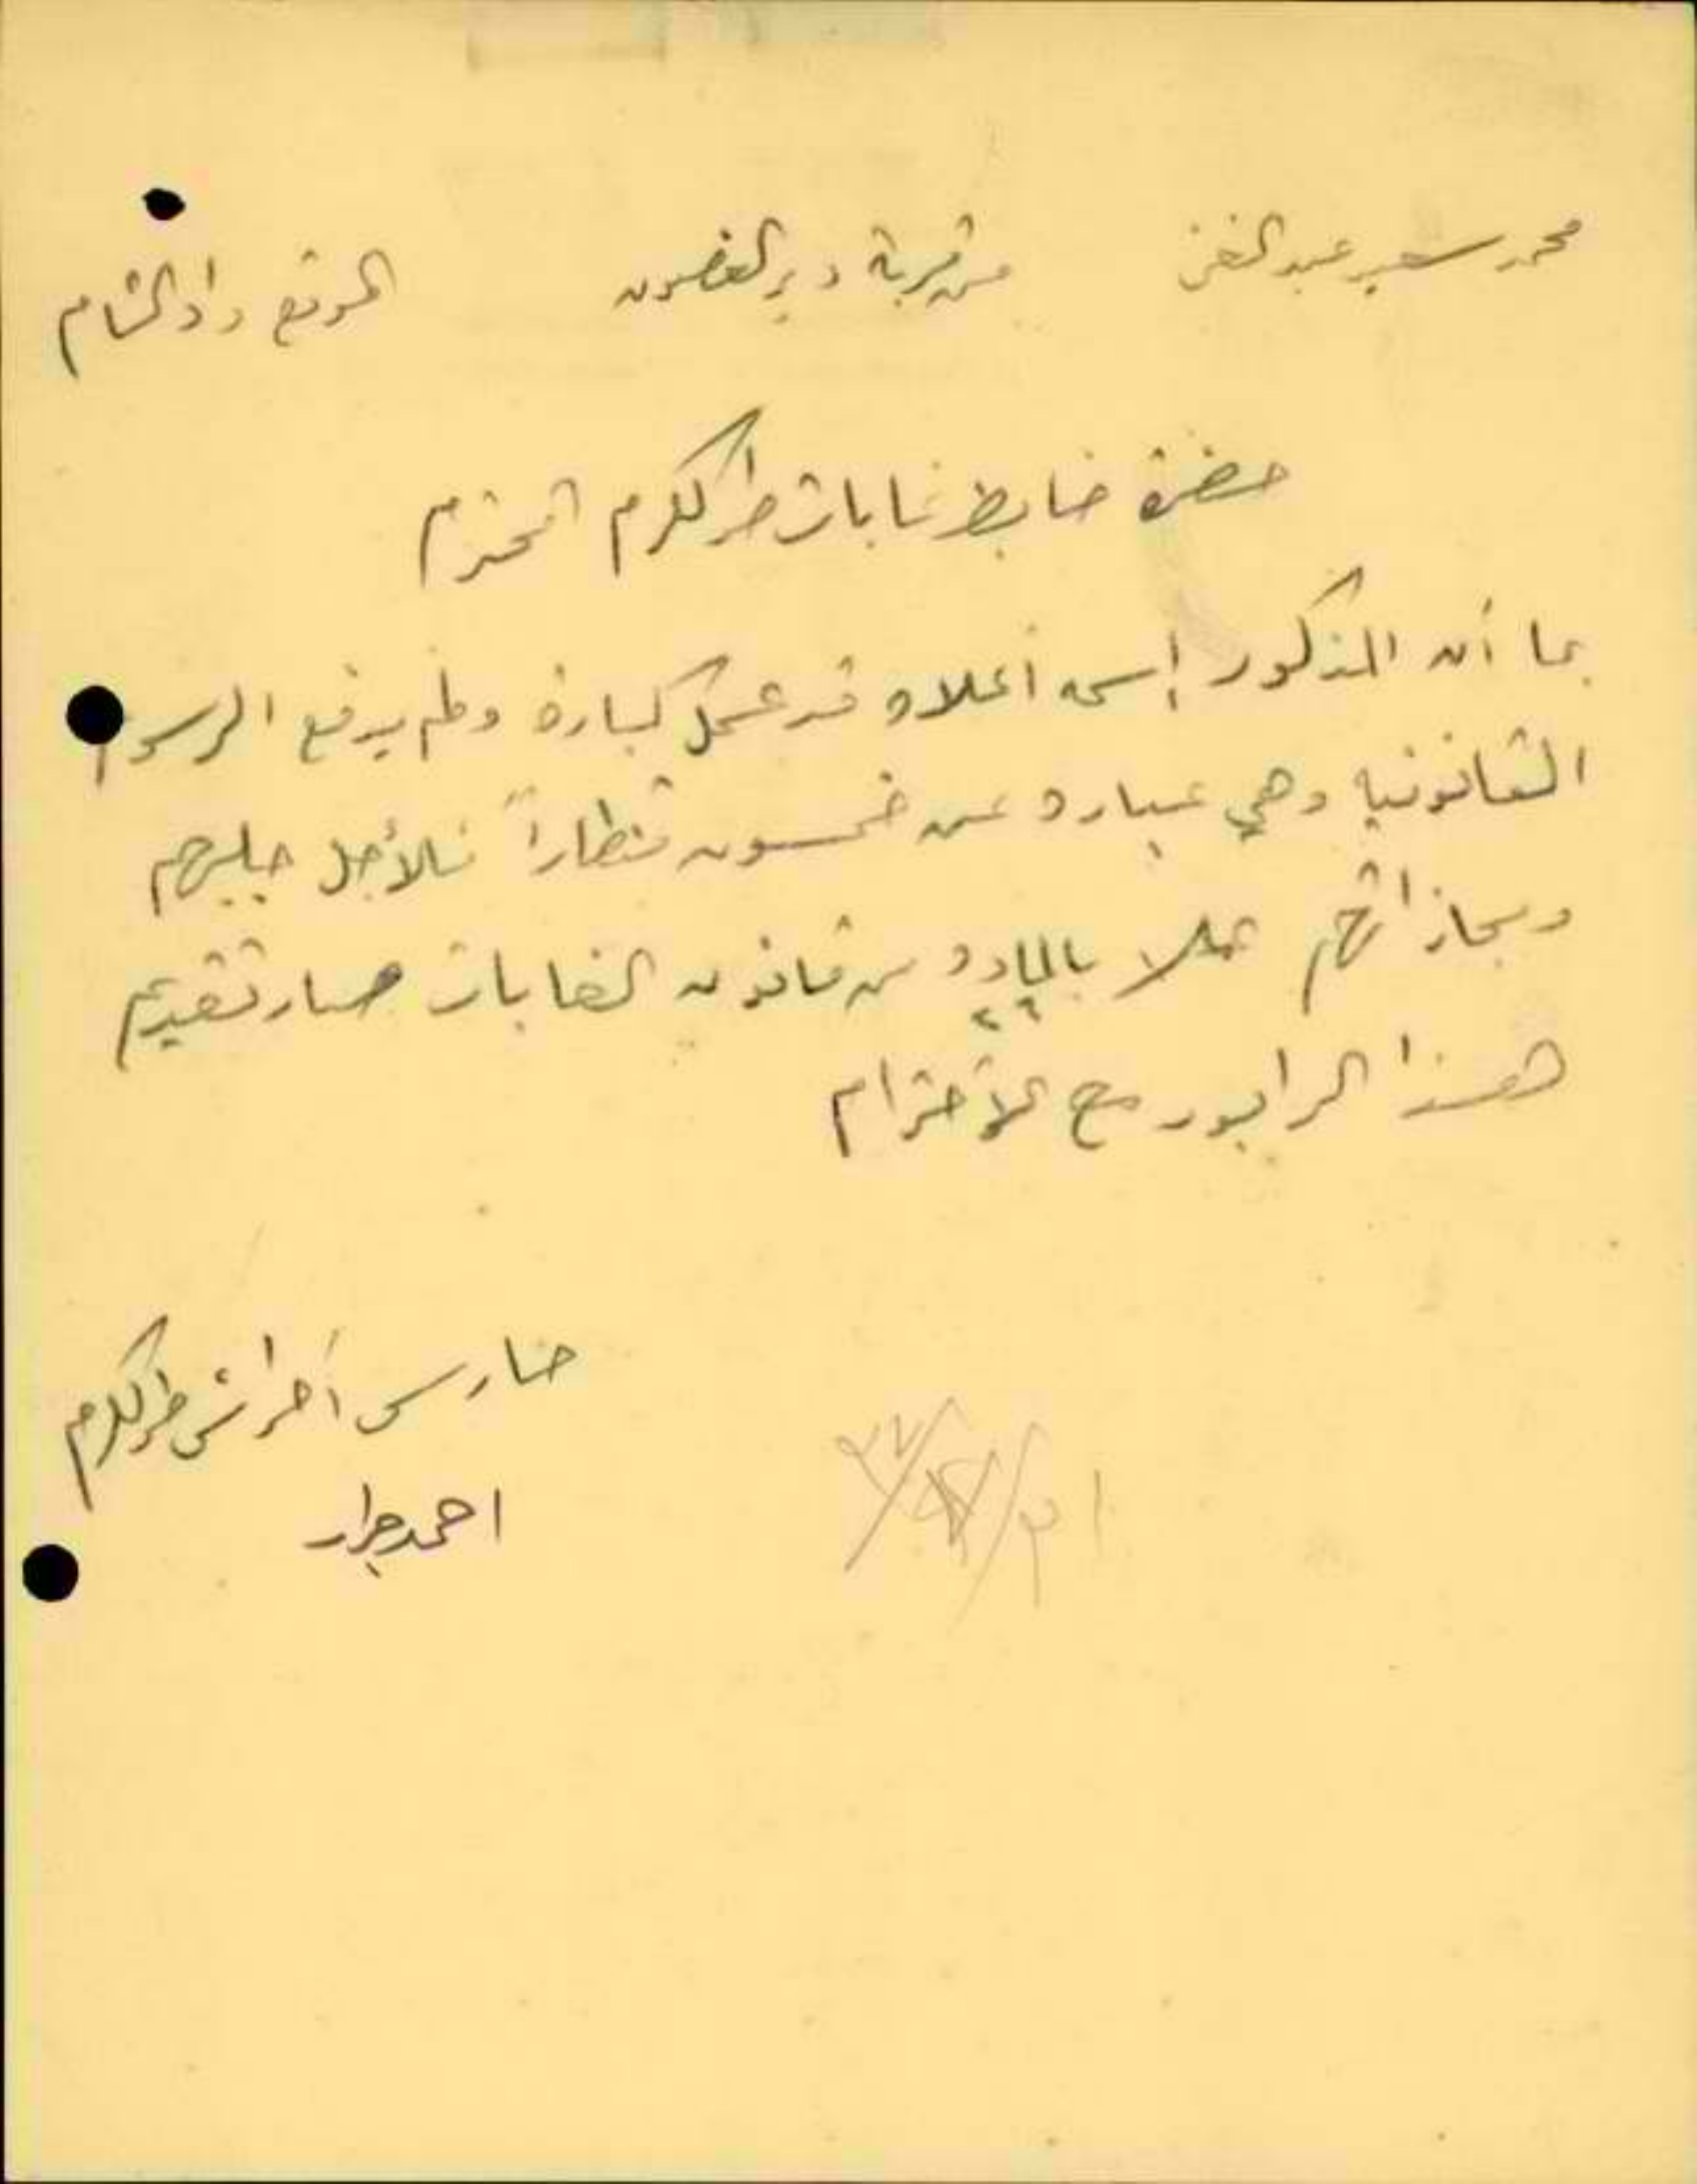 محمد سعيد عبد الغني من قرية دير الغصون الموقع واد الشام
حضرة ضابط غابات طولكرم المحترم
بما أن المذكور إسمه أعلاه قد عمل كبارة ولم يدفع الرسوم
القانونية وهي عبارة عن خمسون قنطاراً فلأجل جلبهم
ومجازاتهم عملا بالمادة ٢٦ من قانون الغابات صار تقديم
هذا الرابور مع الأحترام
حارس أحراش طولكرم
احمد جرار